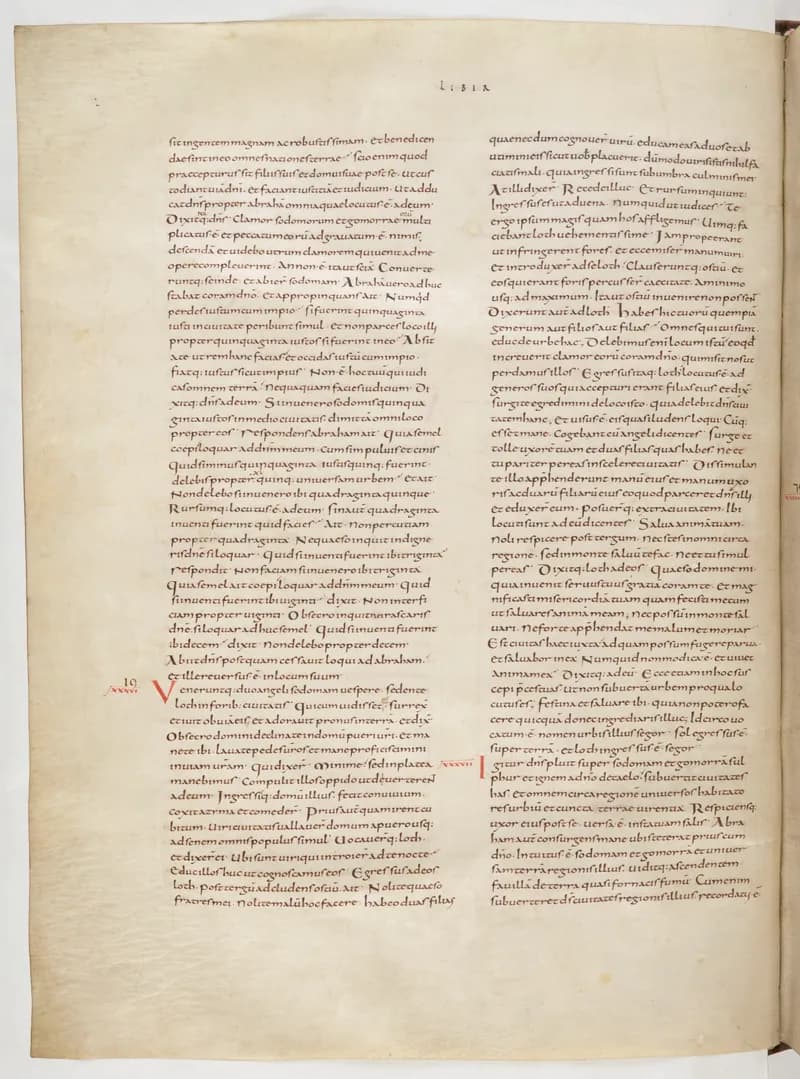 LIBER
sit in gentem magnam ac robustissimam. Et benedicen
dae sint in eo omnes nationes terrae. Scio enim quod
praecepturus sit filiis suis et domui suae post se. Ut cus
todiant uiā dn̄i. Et faciant iustitiā et iudicium. Ut addu
cat dn̄s propter abrahā omnia quae locutus ē ad eum.
Dixit q; dn̄s. Clamor sodomorum et gomorrae multi
plicatus ē. et peccatum eorū adgrauatum ē nimis.
descendā et uidebo utrum clamorem qui uenit ad me
opere compleuerint. An non ē ita ut sciā. Conuerte
runtq; se inde. et abier sodomam. Abrahā uero adhuc
stabat coram dn̄o. Et appropinquans ait. Numqd
perdes iustum cum impio. si fuerint quinquaginta
iusti in ciuitate peribunt simul. et non parces loco illi
propter quinquaginta iustos si fuerint in eo. Absit
a te ut rem hanc facias et occidas iustū cum impio.
fiatq; iustus sicut impius. Non ē hoc tuū qui iudi
cas omnem terrā. nequaquam facies iudicium. Di
xitq; dn̄s ad eum. Si inuenero sodomis quinqua
ginta iustos in medio ciuitatis. dimittā omni loco
propter eos. Respondens abraham ait. Quia semel
coepi loquar ad dn̄m meum. Cum sim puluis et cinis
Quid si minus quinquaginta iustis quinq; fuerint
delebis propter quinq; uniuersam urbem. Et ait
Non delebo si inuenero ibi quadraginta quinque
Rursumq; locutus ē ad eum. sin aut quadraginta
inuenti fuerint quid facies. Ait. Non percutiam
propter quadraginta. Ne quaeso inquit indigne
ris dn̄e si loquar. Quid si inuenti fuerint ibi triginta
Respondit. Non faciam si inuenero ibi triginta
Quia semel ait coepi loquar ad dn̄m meum. Quid
si inuenti fuerint ibi uiginti. dixit. Non interfi
ciam propter uiginti. Obsecro inquit ne irascaris
dn̄e. si loquar adhuc semel. Quid si inuenti fuerint
ibi decem. dixit. Non delebo propter decem.
Abiit dn̄s postquam cessauit loqui ad abraham.
et ille reuersus ē in locum suum
19
XXXVI
Veneruntq; duo angeli sodomam uespere. sedente
loth in forib; ciuitatis. Qui cum uidisset. surrex
et iuit obuiā eis. et adorauit pronus in terra. et dix
Obsecro domini declinate in domū pueri uri. Et ma
nete ibi. Lauate pedes uros et mane proficiscimini
in uiam uram. Qui dixer. Minime. sed in platea
manebimus. Compulit illos oppido ut deuerterent
ad eum. Ingressisq; domū illius. fecit conuiuium.
coxit azyma et comeder. Priusaut quam irent cu
bitum. Uiri ciuitatis uallauer domum a puero usq;
ad senem omnis populus simul. Uocauerq; loth.
et dixer ei. Ubi sunt uiri qui introier ad te nocte.
Educ illos huc ut cognoscamus eos. Egressus ad eos
loth. post tergū adcludens ostiū. ait. Nolite quaeso
fratres mei. Nolite malū hoc facere. habeo duas filias
quae necdum cognouer uirū. educam eas ad uos et ab
utimini eis sicut uob placuerit. dūmodo uiris istis nihil fa
ciatis mali. quia ingressi sunt sub umbra culminis mei
At illi dixer. Recede illuc. Et rursum inquiunt.
Ingressus es ut aduena. Numquid ut iudices. Te
ergo ipsum magis quam hos affligemus. Uimq; fa
ciebant loth uehementissime. Iam prope erant
ut infringerent fores. et ecce miser manum uiri.
et introduxer ad se loth. Clauseruntq; ostiū. et
eos qui erant foris percusser caecitate. A minimo
usq; ad maximum. Ita ut ostiū inuenire non possent
Dixerunt aut ad loth. Habes hic tuorū quempiā
generum aut filios aut filias. Omnes qui tui sunt.
educ de urbe hac. Delebimus enī locum istū. eo qd
increuerit clamor eorū coram dn̄o. qui misit nos ut
perdamus illos. Egressus itaq; loth. locutus ē ad
generos suos qui accepturi erant filias eius. et dix.
surgite egredimini de loco isto. quia delebit dn̄s ciui
tatem hanc. Et uisus ē eis quasi ludens loqui. Cūq;
esset mane. Cogebant eū angeli dicentes. Surge et
tolle uxorē tuam et duas filias quas habes. ne et
tu pariter pereas in scelere ciuitatis. Dissimulan
te illo apprehenderunt manū eius et manum uxo
ris ac duarū filiarū eius eo quod parceret dn̄s illi.
et eduxer eum. Posuerq; extra ciuitatem. Ibi
locuti sunt ad eū dicentes. Salua animā tuam.
Noli respicere post tergum. Nec stes in omni circa
regione. sed in monte saluū te fac. Ne et tu simul
pereas. Dixitq; loth ad eos. Quaeso domine mi.
quia inuenit seruus tuus gratiā coram te. Et mag
nificasti misericordiā tuam quam fecisti mecum
ut saluares animā meam. nec possū in monte sal
uari. Ne forte apprehendat me malum et moriar
Est ciuitas haec iuxta ad quam possum fugere parua.
et saluabor in ea. Numquid non modica ē. et uiuet
anima mea. Dixitq; ad eū. Ecce etiam in hoc sus
cepi preces tuas. Ut non subuertā urbem pro qua lo
cutus es. festina et saluare ibi. quia non potero fa
cere quicquā donec ingrediaris illuc. Idcirco uo
catum ē nomen urbis illius segor. Sol egressus ē
super terrā. et loth ingressus ē segor
XXXVII
Igitur dn̄s pluit super sodomam et gomorrā sul
phur et ignem a dn̄o de caelo. subuertit ciuitates
has. et omnem circa regionē uniuersos habitato
res urbiū et cuncta terrae uirentia. Respiciensq;
uxor eius post se. uersa ē in statuam salis. Abra
ham aut consurgens mane ubi steterat prius cum
dn̄o. Intuitus ē sodomam et gomorrā et uniuer
sam terrā regionis illius. uiditq; ascendentem
fauillā de terra quasi fornacis fumū. Cum enim
subuerteret ds̄ ciuitates regionis illius recordatus ē